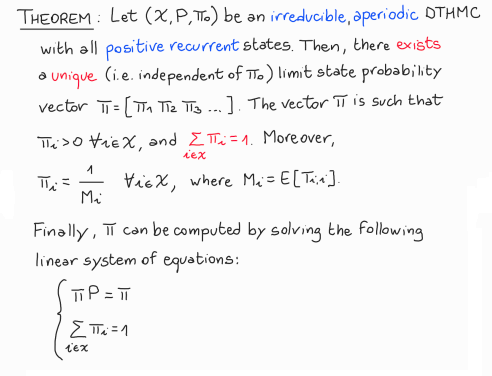 THEOREM: Let (X, P, π₀) be an irreducible, aperiodic DTHMC
with all positive recurrent states. Then, there exists
a unique (i.e. independent of π₀) limit state probability
vector π = [π₁ π₂ π₃ ...]. The vector π is such that
πᵢ>0 ∀i∈X, and Σ_{i∈X} πᵢ=1. Moreover,
πᵢ = 1/Mᵢ ∀i∈X, where Mᵢ = E[Tᵢ,ᵢ].
Finally, π can be computed by solving the following
linear system of equations:
πP = π
Σ_{i∈X} πᵢ = 1